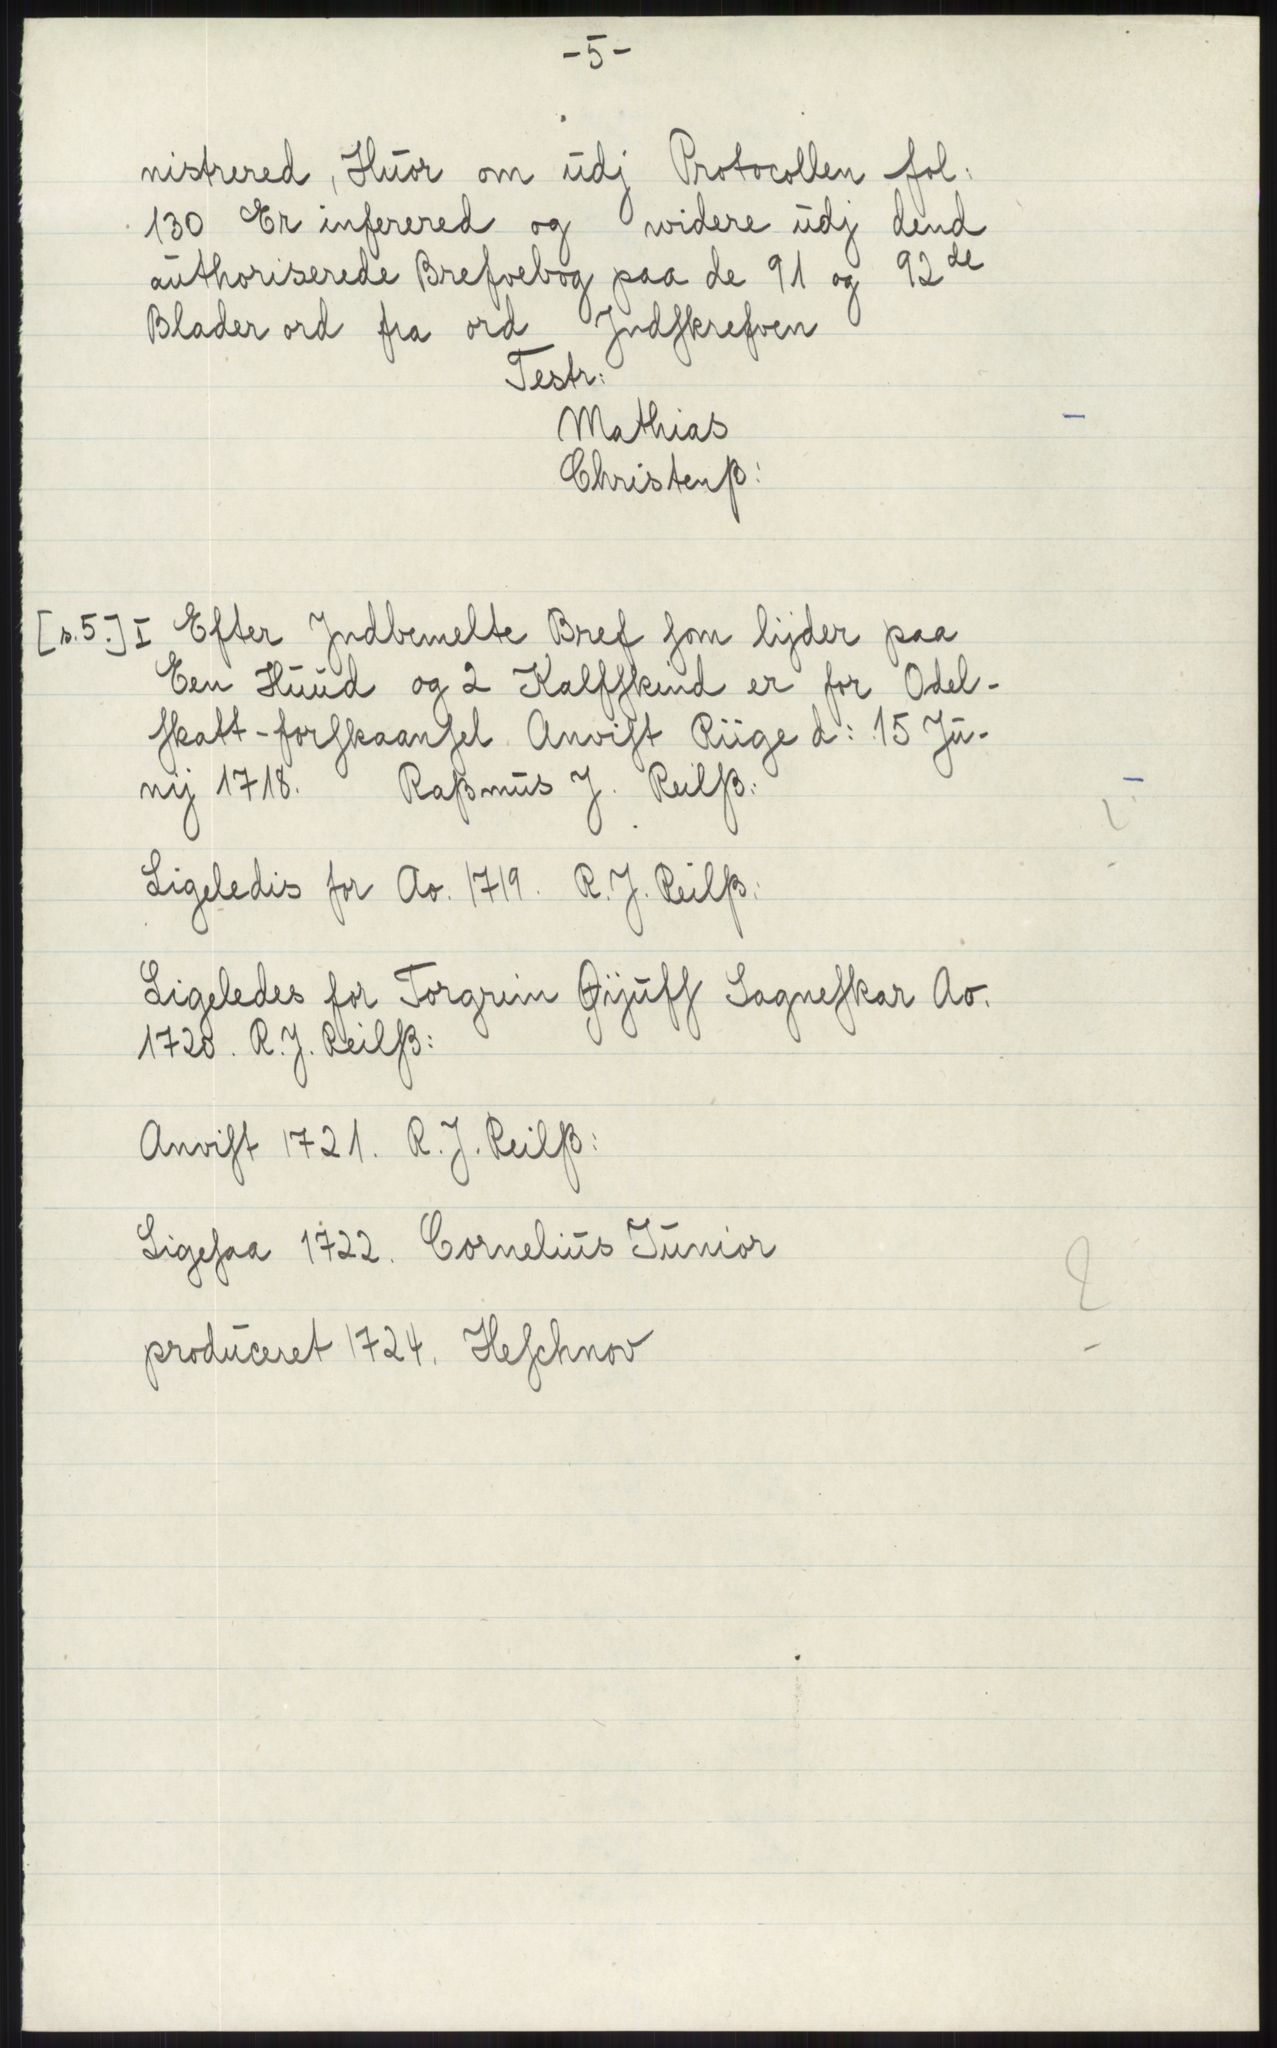 -5-
nistrered, Huor om udj Protocollen fol:
130 Er inferered og widere udj dend
authoriserede Brefvebog paa de 91 og 92de
Blader ord fra ord Jndſkrefven
Testr:
Mathias
Christenß:
[s.5.] I Efter Jndbemelte Bref ſom lijder paa
Een Huud og 2 Kalfſkind er for Odel-
ſkatt-forſkaanſel Anviſt Riige d: 15 Ju-
nij 1718. Raßmus J. Reilß:
Ligeledis for Ao. 1719. R. J. Reilß:
Ligeledes for Torgrim Sagneſkar Ao.
1720. R. J. Reilß:
Anviſt 1721. R. J. Reilß:
Ligeſaa 1722. Cornelius Junior
produceret 1724. Heſchnov